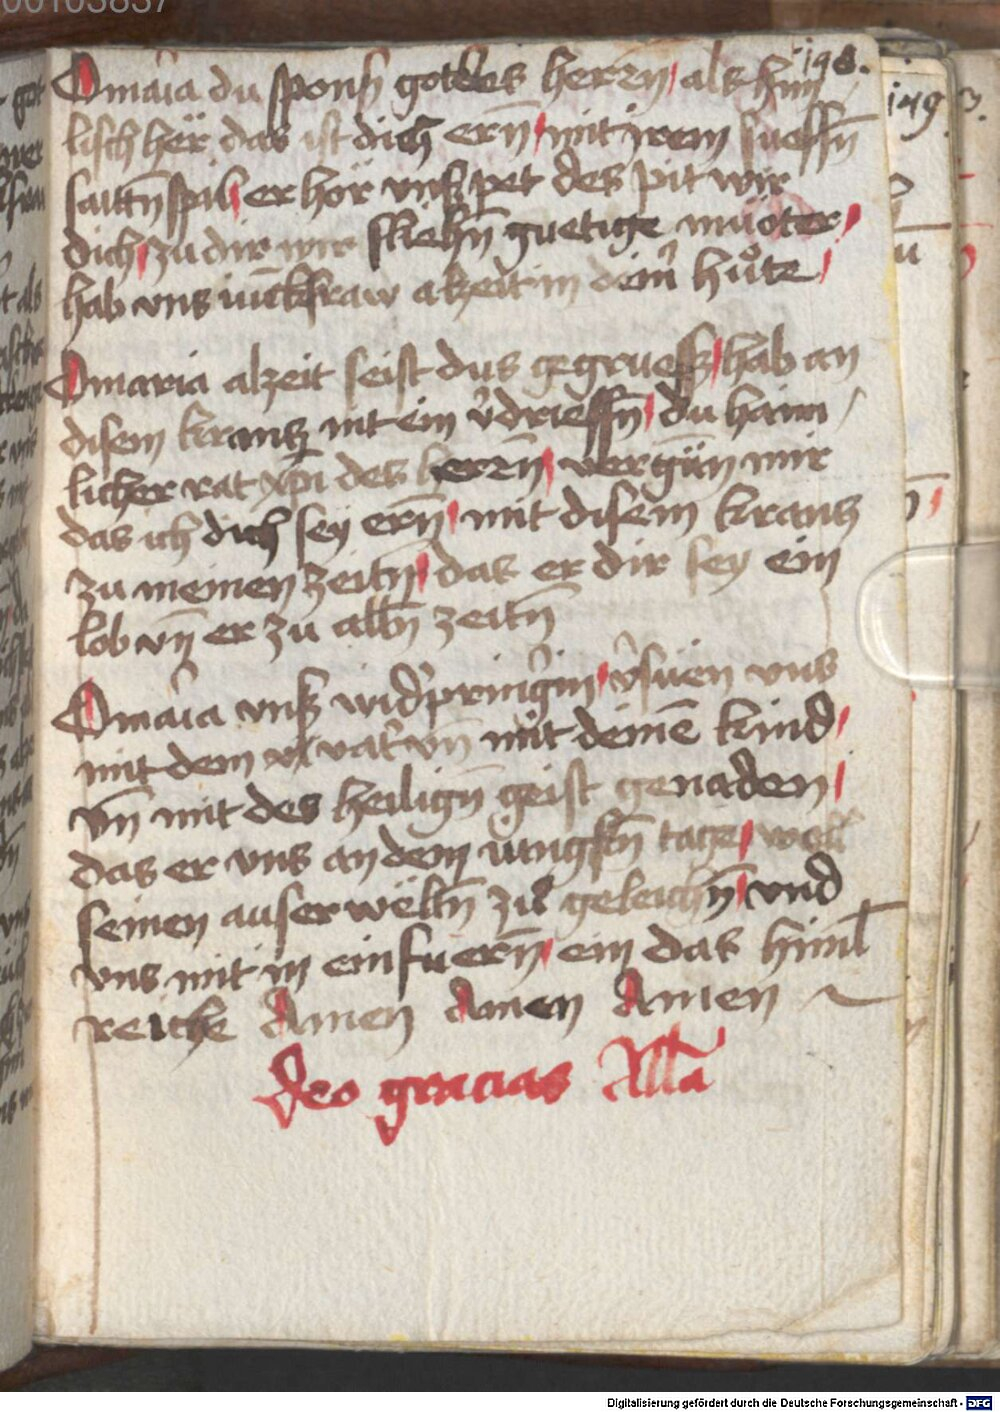 148.
O maria du sponß gottes herrn / als him
lisch her das ist dich ern̄ / mit irem suessn̄
saittn̄ spil / er hör vnß pet des pit wir
dich / zu dir wir fliehn̄ guetige muoter /
hab vns iuckfraw alzeit in dein̄ huote /
O maria alzeit seist dus gegruest / hab an
disem krantz nit ein v̄driessn̄ / du haim /
licher rat xp̄i des herrn̄ / vergün mir
das ich dich sey ern̄ / mit disem krantz
zu meinen zeitn̄ / das er dir sey ein
lob vn̄ er zu alln̄ zeitn̄
O maria vnß wid'pring'in / v'süen vns
mit dem vat' vn̄ mit deinē kind /
vn̄ mit des heilign̄ geist genaden /
das er vns an dem iungstn̄ tage / wöll
seinen auserwëltn̄ zu geleichn̄ / vnd
vns mit in einfuern̄ / ein das himl
reiche Amen Amen Amen
deo gracias All'a
149
Digitalisierung gefördert durch die Deutsche Forschungsgemeinschaft - DFG